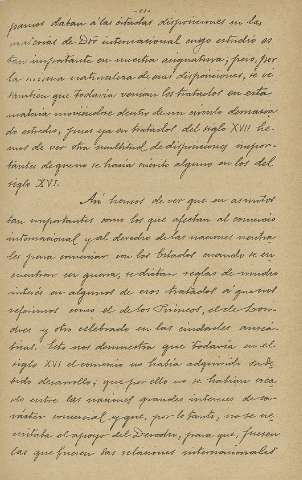 pamos daban á las citadas disposiciones en las
materias de Dro internacional cuyo estudio es
tan importante en nuestra asignatura; pero, por
la misma naturaleza de sus disposiciones, se ve
también que todavía venían los tratados en esta
materia moviendose dentro de un circulo demasia
do estrecho, pues ya en tratados del siglo XVII he-
mos de ver otra multitud de disposiciones impor-
tantes de que no se hacía mérito alguno en los del
siglo XVI.
Así hemos de ver que en asuntos
tan importantes como los que afectan al comercio
internacional y al derecho de las naciones neutra-
les para comerciar con los Estados cuando se en-
cuentran en guerra, se dictan reglas de mucho
interés en algunos de esos tratados á que nos
referimos como el de los Pirineos, el de Lon-
dres y otro celebrado en las ciudades anseá-
ticas. Esto nos demuestra que todavía en el
siglo XVI el comercio no había adquirido su de-
bido desarrollo; que por ello no se habían crea
do entre las naciones grandes intereses de ca-
rácter comercial y que, por lo tanto, no se ne-
cesitaba el apoyo del Derecho, para que, fuesen
las que fuesen las relaciones internacionales